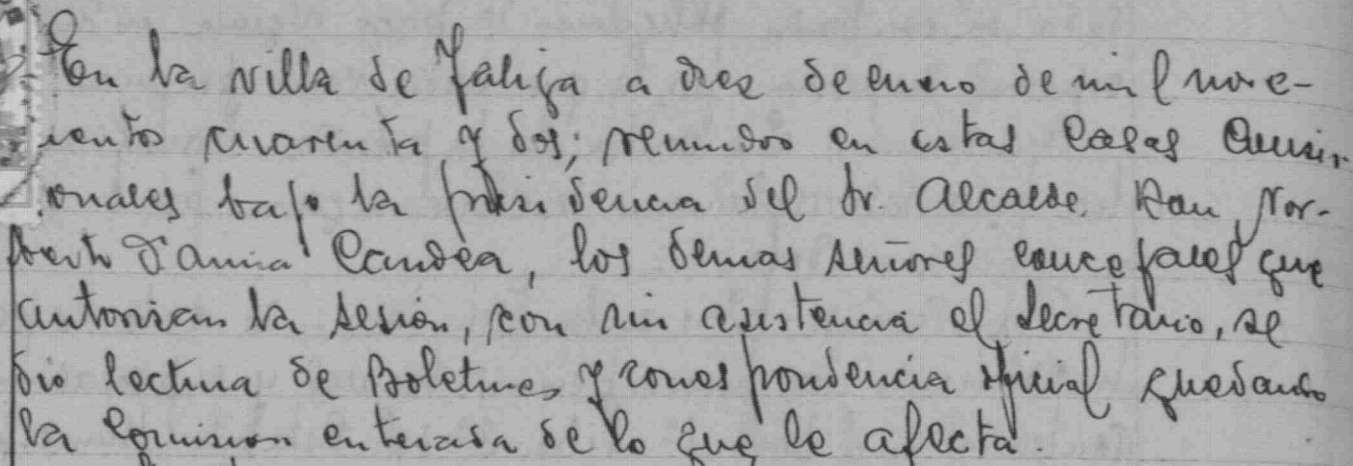 En la villa de Jalija a diez de enero de mil nove-
cientos cuarenta y dos; reunidos en estas Casas Consis-
toriales bajo la presidencia del Sr. Alcalde. Don Nor-
berto D'Amia Candea, los demas señores concejales que
autorizan la sesión, con mi asistencia el Secretario, se
dio lectura de Boletines y correspondencia oficial quedando
la comision enterada de lo que le afecta.